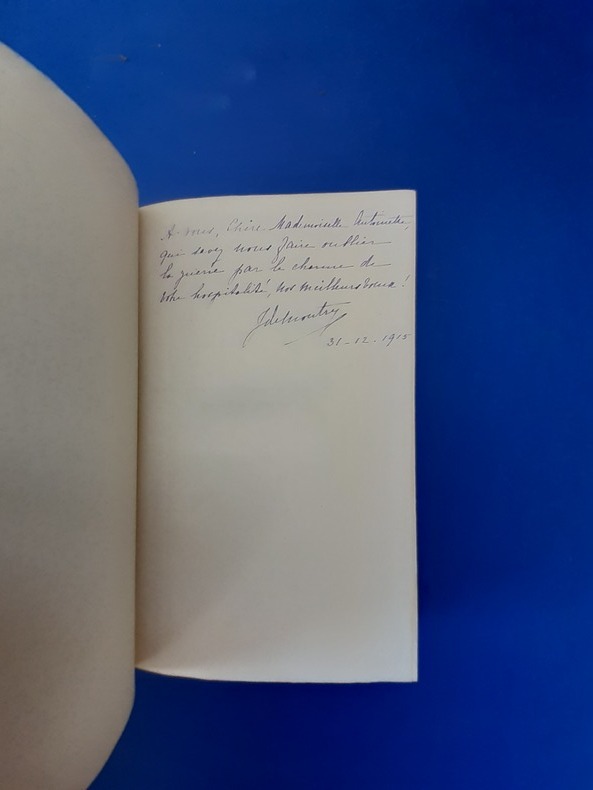 A vous, Chère Mademoiselle Antoinette,
qui savez nous faire oublier
la guerre par le charme de
votre hospitalité, nos meilleurs voeux !
31-12-1915